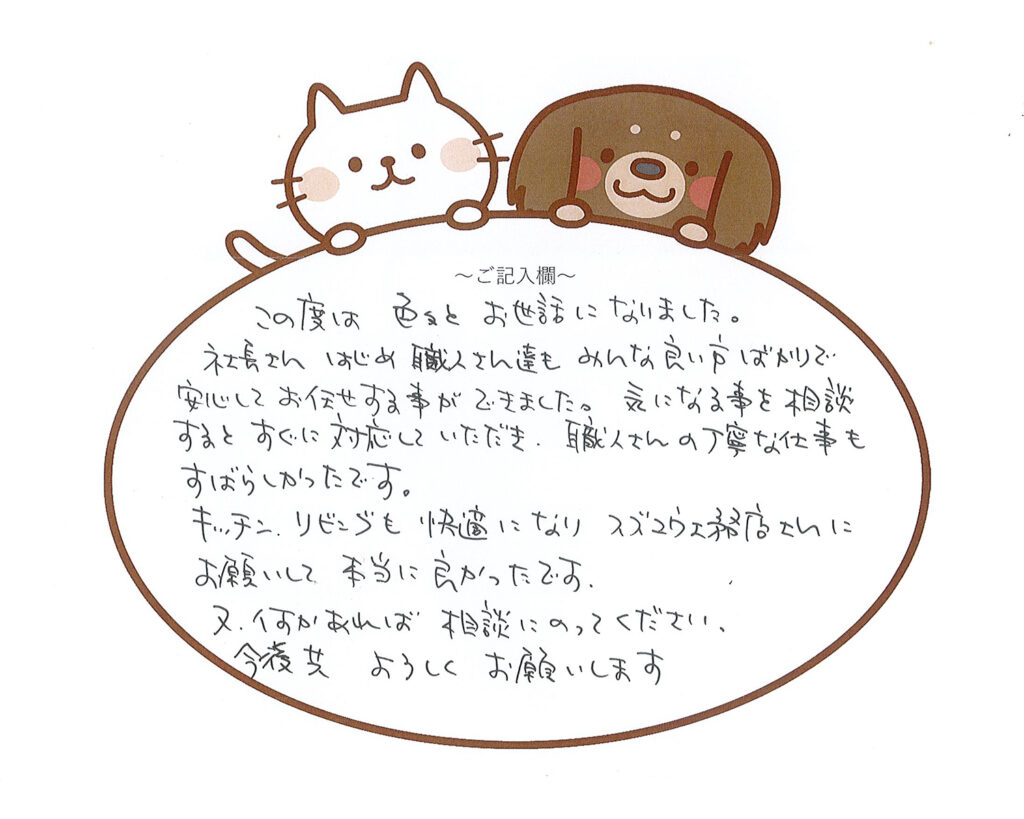 ～ご記入欄～
この度は 色々と お世話に なりました。
社長さん はじめ 職人さん達も みんな良い方ばかりで
安心して お任せする事が できました。 気になる事を 相談
すると すぐに 対応して いただき、 職人さんの丁寧な仕事も
すばらしかったです。
キッチン、リビングも 快適になり スズユウ工務店さんに
お願いして 本当に 良かったです。
又、何かあれば 相談にのってください。
今後共 よろしく お願いします